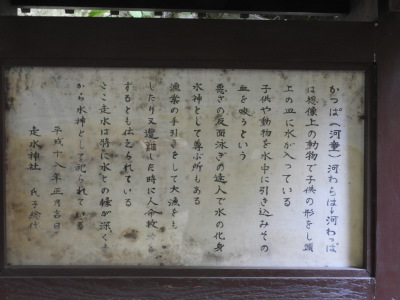 かっぱ(河童)河わらは→河わっぱ
は想像上の動物で子供の形をし頭
上の皿に水が入っている
子供や動物を水中に引き込みその
血を吸うという
悪さの反面泳ぎの達人で水の化身
水神として尊ぶ所もある
漁業の手引きをして大漁をも
したり又遭難した時に人命救
するとも伝えられている
ここ走水は特に水との縁が深く
から水神として祀られている
平成十八年正月吉日
走水神社 氏子総代